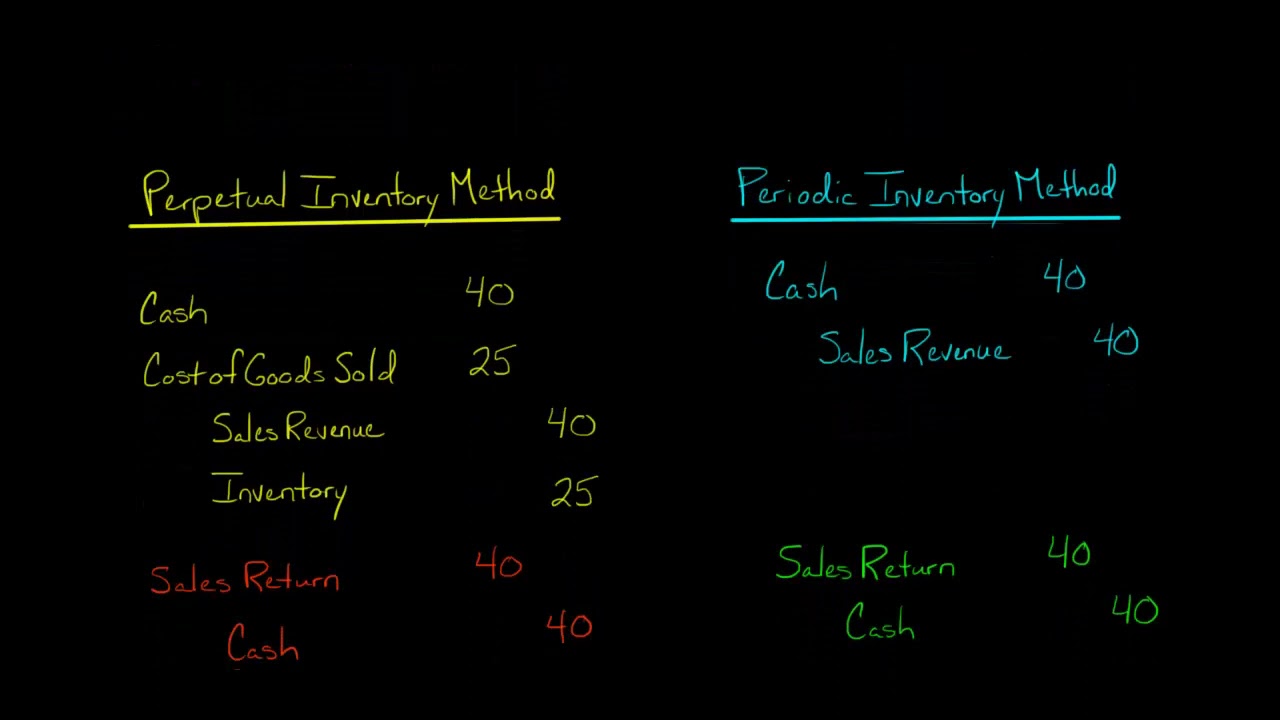 Perpetual Inventory Method
Cash 40
Cost of Goods Sold 25
Sales Revenue 40
Inventory 25
Sales Return 40
Cash 40
Periodic Inventory Method
Cash 40
Sales Revenue 40
Sales Return 40
Cash 40